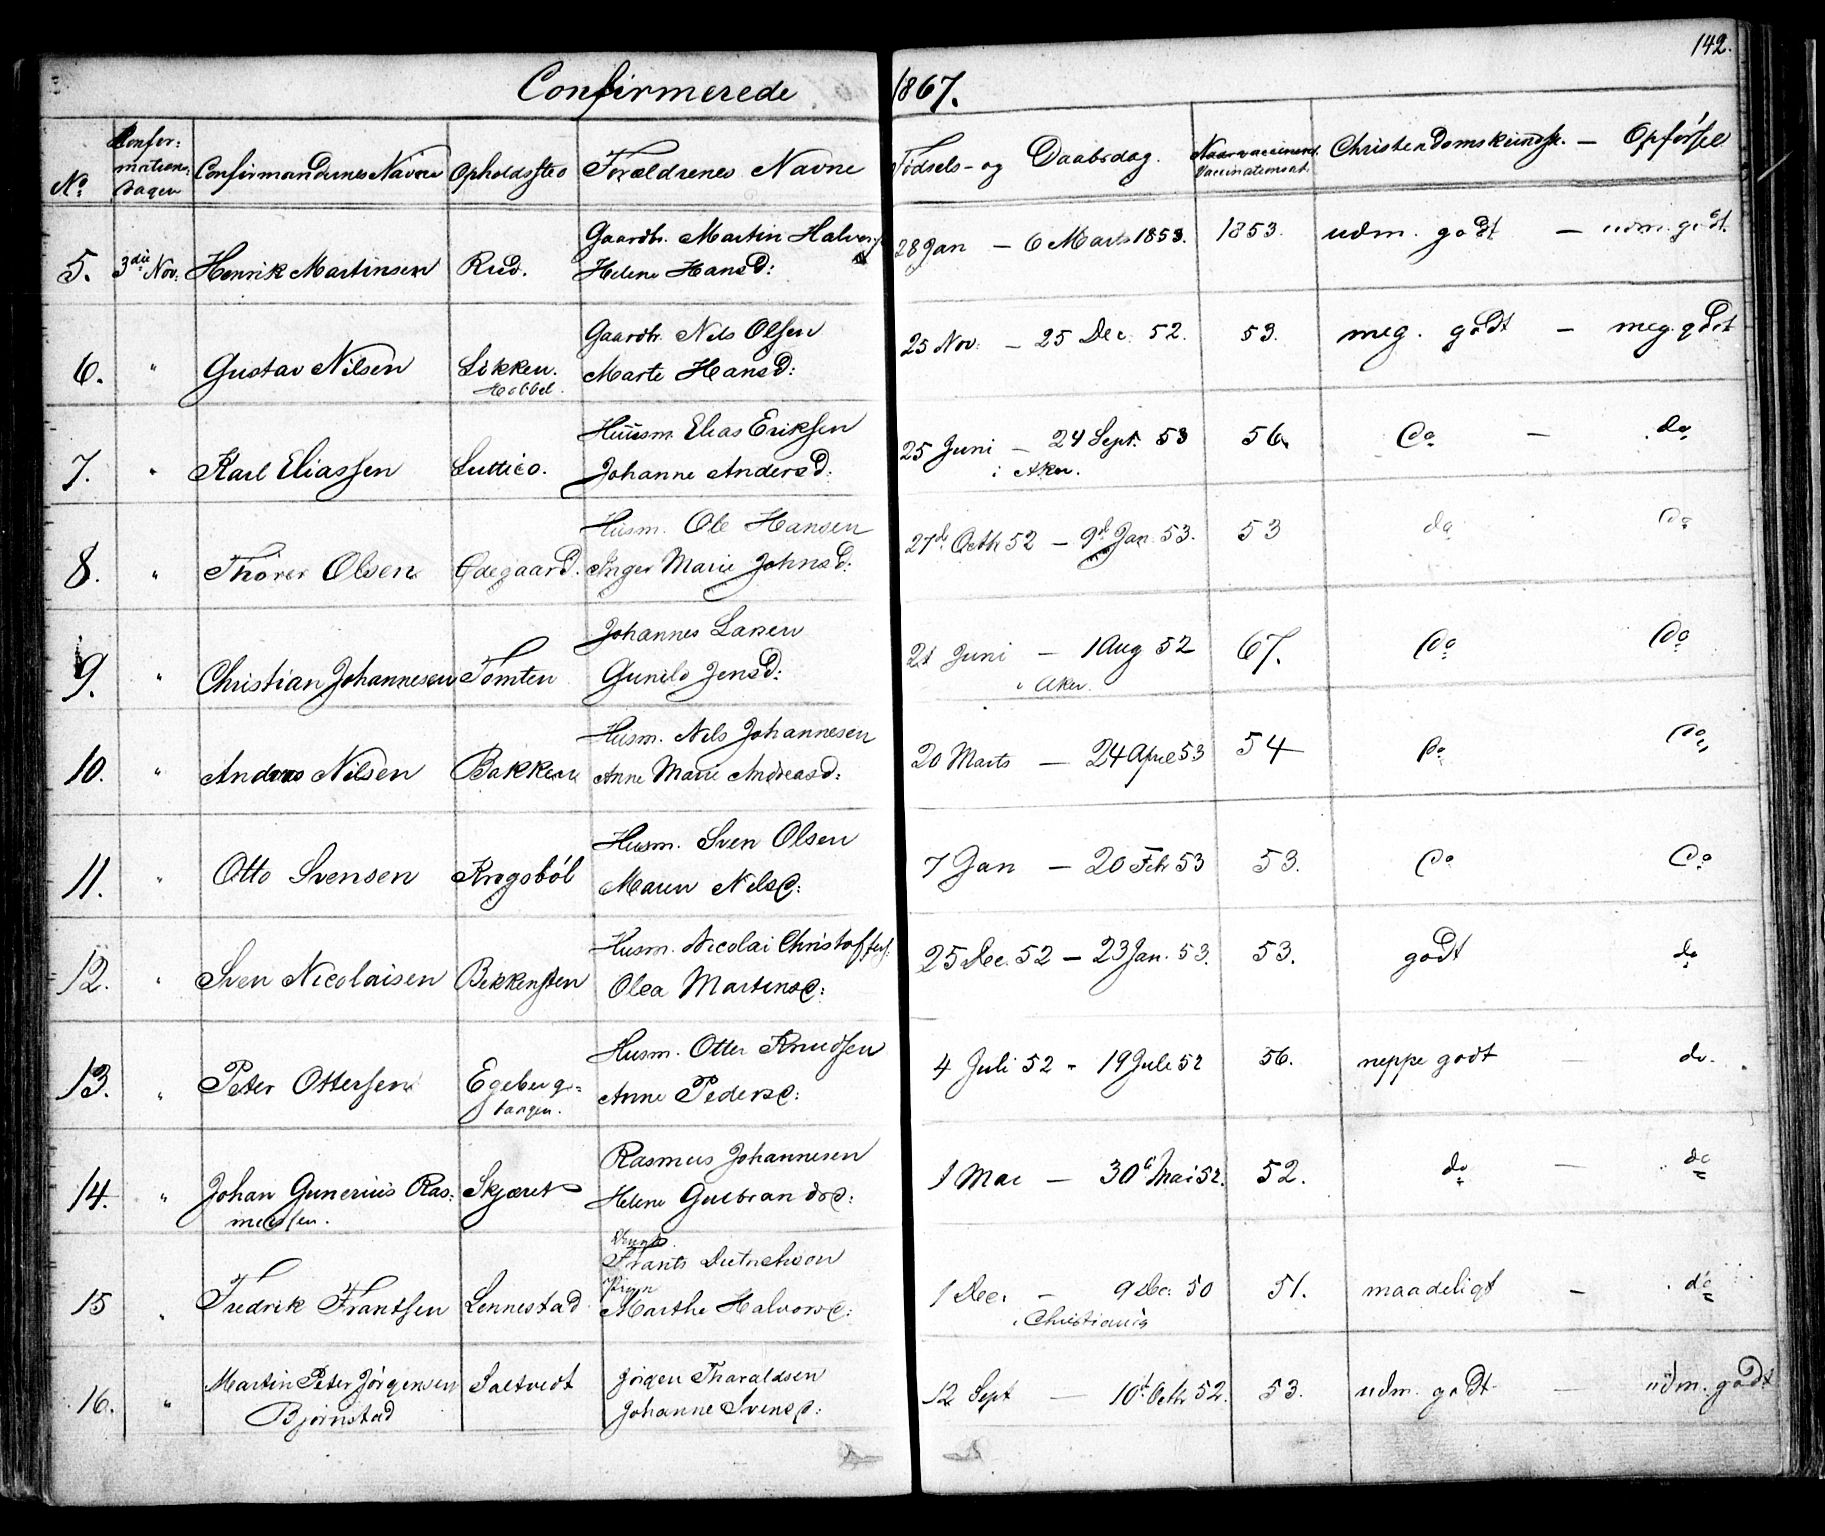 142.
Confirmerede 1867.
No Confir=mations dagen Confirmandernes Navne Opholdssted Forældrenes Navne Födsels- og Daabsdag. Naar vaccineret Vaccinationsat. Christendomskundsk. — Opförsel
5. 3die Nov. Henrik Martinsen Rud. Gaardbr. Martin Halvors. Helene Hansd: 28 Jan — 6 Marts 1853. 1853. udm. godt — udm. godt
6. " Gustav Nilsen Løkken. Hobbel. Gaardbr. Nils Olsen Marte Hansd: 25 Nov. — 25 Dec. 52. 53. meg. godt — meg. godt
7. " Karl Eliassen Huusm. Elias Eriksen Johanne Andersd: 25 Juni — 24 Sept. 53 i Aker. 56. do — do
8. " Thorer Olsen Ödegaard. Husm. Ole Hansen Inger Marie Johnsd: 27d Octbr 52 — 9d Jan. 53. 53 do do
9. " Christian Johannesen Tomten Johannes Larsen Gunild Jensd: 21 Juni — 1 Aug 52 i Aker. 67. do do
10. " Anders Nilsen Bakken Husm. Nils Johannesen Anne Marie Andreasd: 20 Marts — 24 April 53 54 do do
11. " Otto Svensen Krogsböl Husm. Sven Olsen Maren Nilsd: 7 Jan — 20 Febr 53 53. do do
12. " Sven Nicolaisen Bekkensten Husm. Nicolai Christoffers. Olea Martinsd: 25 Dec. 52 — 23 Jan. 53. 53. godt do
13. " Peter Ottersen Egeberg=tangen. Husm. Otter Knudsen Anne Pedersd: 4 Juli 52 - 19 Juli 52 56. neppe godt — do.
14. " Johan Gunerius Ras=mussen. Skjæret Rasmus Johannesen Helene Gulbrandsd: 1 Mai — 30d Mai 52. 52. do — do
15 " Fredrik Frantsen Lennestad Frants Dietrichson Pigen Marthe Halvorsd: 1 Dec. — 9 Dec. 50 i Christiania 51. maadeligt — do
16. " Martin Peter Jörgensen Björnstad Saltvedt Jörgen Tharaldsen Johanne Svensd: 12 Sept — 10d Octbr 52. 53. udm. godt — udm. godt